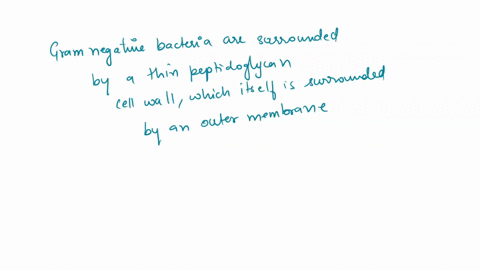 Gram negative bacteria are surrounded
by a thin peptidoglycan
cell wall, which itself is surrounded
by an outer membrane